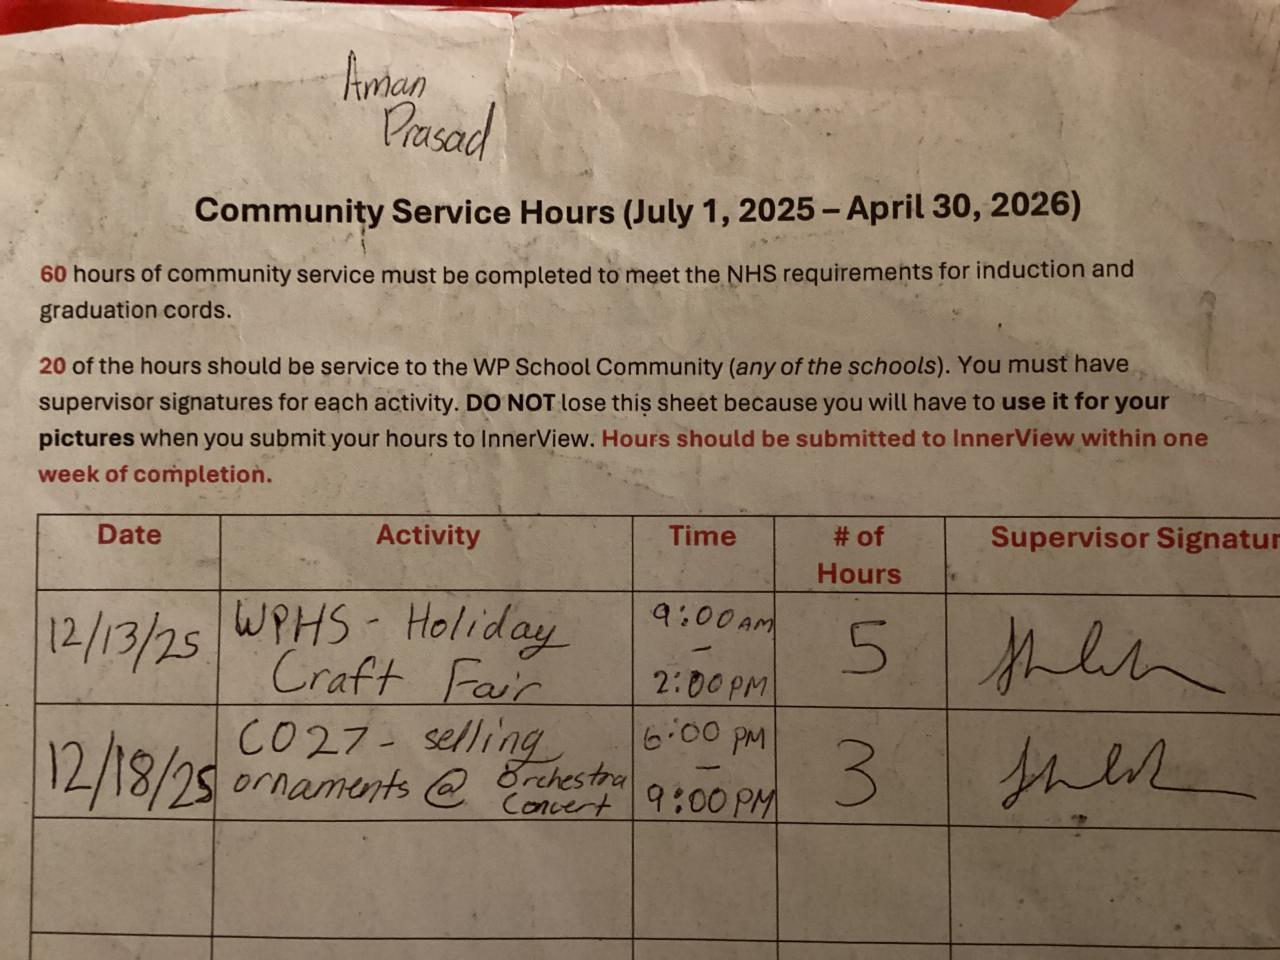 Aman
Prasad
Community Service Hours (July 1, 2025 – April 30, 2026)
60 hours of community service must be completed to meet the NHS requirements for induction and
graduation cords.
20 of the hours should be service to the WP School Community (any of the schools). You must have
supervisor signatures for each activity. DO NOT lose this sheet because you will have to use it for your
pictures when you submit your hours to InnerView. Hours should be submitted to InnerView within one
week of completion.
Date Activity Time # of Hours Supervisor Signatur
12/13/25 WPHS - Holiday Craft Fair 9:00 AM – 2:00 PM 5
12/18/25 CO27 - selling ornaments @ Orchestra Concert 6:00 PM – 9:00 PM 3